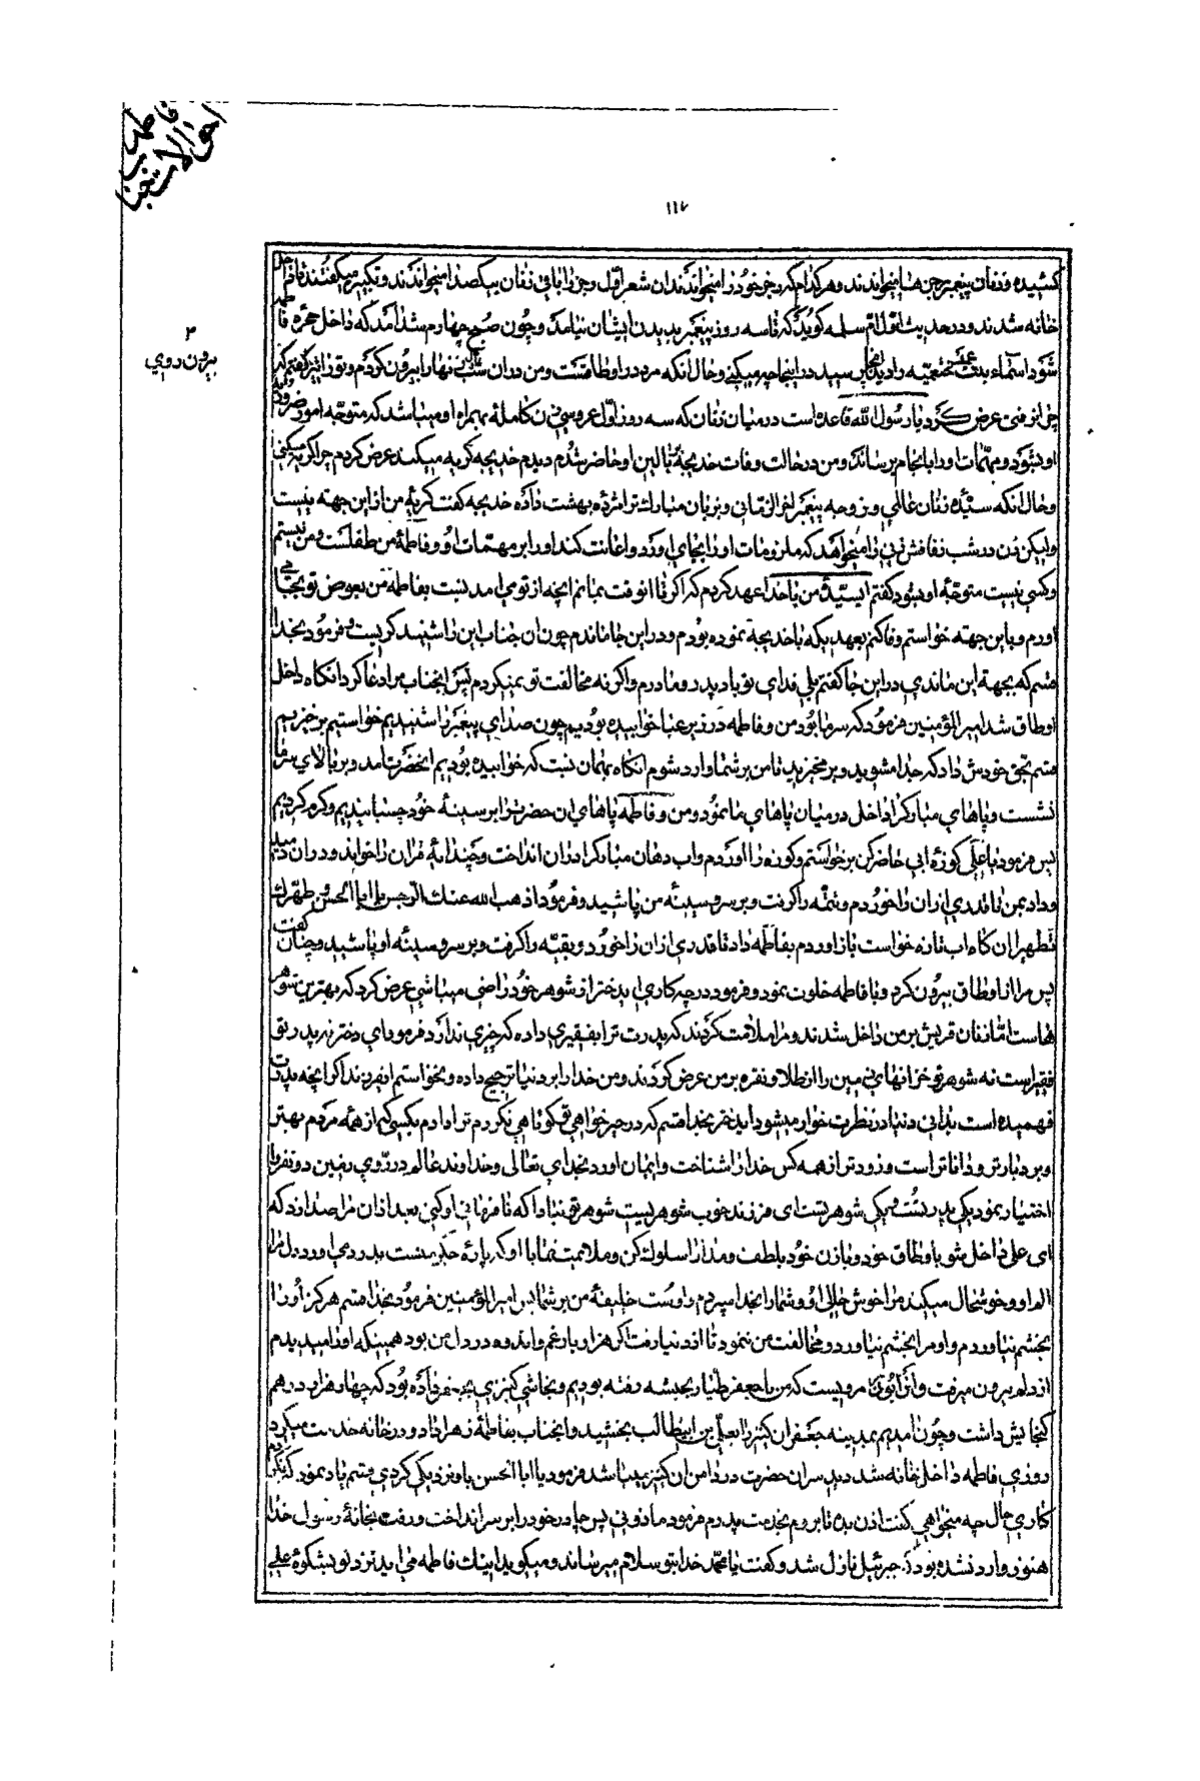 احوالات جناب فاطمه
۱۱۷
کشیده و زنان پیغمبر رجزها میخواندند و هر کدام که رجز خود را میخواندند ان شعر اول رجز را باقی زنان بیکصدا میخواندند و تکبیر میگفتند تا داخل
خانه شدند و در حدیث اول ام سلمه گوید که تا سه روز پیغمبر بدیدن ایشان نیامد و چون صبح چهارم شد امد که داخل حجره فاطمه
شود اسماء بنت عمیس خثعمیه را دید انجا پرسید در اینجا چه میکنی و حال انکه مرد در اوطاقست و من در ان شب زنها را بیرون کردم و تو را نیز گفتم که
چرا نرفتی عرض کرد یا رسول الله قاعده است در میان زنان که سه روز اول عروسی زن کامله بهمراه او میباشد که متوجه امور ضروریه
او بشود و مهمات او را بانجام برساند و من در حالت وفات خدیجه ببالین او حاضر شدم دیدم خدیجه گریه میکند عرض کردم چرا گریه میکنی
و حال انکه سیده زنان عالمی و زوجه پیغمبر اخر الزمانی و بزبان مبارک ترا مژده بهشت داده خدیجه گفت گریه من از این جهته نیست
ولیکن زن در شب زفافش زنی را میخواهد که ملزومات او را بجای اورد و اعانت کند او را بر مهمات او و فاطمه من طفلست و من نیستم
و کسی نیست متوجه او بشود گفتم ای سیده من با خدا عهد کردم که اگر تا انوقت بمانم انچه از تو می امد نسبت بفاطمه من بعوض تو بجا می
اورم و باین جهته خواستم وفا کنم بعهدیکه با خدیجه نموده بودم و در این جا ماندم چون ان جناب این را شنید گریست و فرمود بخدا
قسم که بجهة این ماندی در این جا گفتم بلی فدای تو باد پدر و مادرم و اگر نه مخالفت تو نمیکردم پس انجناب مرا دعا کرد انگاه داخل
اوطاق شد امیر المؤمنین فرمود که سرما بود من و فاطمه در زیر عبا خوابیده بودیم چون صدای پیغمبر را شنیدیم خواستیم برخیزیم
قسم بحق خودش داد که جدا مشوید و برمخیزید تا من بر شما وارد شوم انگاه بهمان نسبت که خوابیده بودیم انحضرت امد و بر بالای سر ما
نشست و پاهای مبارکرا داخل در میان پاهای ما نمود و من و فاطمه پاهای ان حضرت را بر سینه خود چسبانیدیم و گرم کردیم
پس فرمود یا علی کوزه ابی حاضر کن برخواستم و کوزه را اوردم و اب دهان مبارکرا در ان انداخت و چند ایه قران را خواند و در ان دمید
و داد بمن تا قدری از ان را خوردم و تتمه را گرفت و بر سر و سینه من پاشید و فرمود اذهب الله عنک الرجس یا ابا الحسن و طهرک
تطهیرا ان گاه اب تازه خواست باز اوردم بفاطمه داد تا قدری از ان را خورد و بقیه را گرفت و بر سر و سینه او پاشید و چنان گفت
پس مرا از اوطاق بیرون کرد و با فاطمه خلوت نمود و فرمود در چه کاری اید ختر از شوهر خود راضی میباشی عرض کرد که بهترین شوهر
هاست اما زنان قریش بر من داخل شدند و مرا ملامت کردند که پدرت ترا بفقیری داده که چیزی ندارد فرمود ای دختر نه پدر تو
فقیر است نه شوهر تو خزانهای زمین را از طلا و نقره بر من عرض کردند و من خدا را بر دنیا ترجیح داده و نخواستم ایفرزند اگر انچه پدرت
فهمیده است بدانی دنیا در نظرت خوار میشود اید ختر بخدا قسم که در خیر خواهی تو کوتاهی نکردم ترا دادم بکسی که از همه مردم بهتر
و بردبارتر و داناتر است و زودتر از همه کس خدا را شناخت و ایمان اورد بخدای تعالی و خداوند عالم در روی زمین دو نفر را
اختیار نمود یکی پدر تست و یکی شوهر تست ای فرزند خوب شوهریست شوهر تو مبادا که نافرمانی او کنی بعد از ان مرا صدا زد که
ای علی داخل شو باوطاق خود و با زن خود بلطف و مدارا سلوک کن و ملایمت نما با او که پاره جگر منست بدرد می اورد دل مرا
الم او و خوشحال میکند مرا خوش حالی او و شما را بخدا میسپردم و اوست خلیفه من بر شما پس امیر المؤمنین فرمود بخدا قسم هرگز او را
بخشم نیاوردم و او مرا بخشم نیاورد و مخالفت من ننمود تا از دنیا رفت اگر هزار بار غم و اندوه در دل من بود همینکه او را میدیدم
از دلم بیرون میرفت و از ابوذر مرویست که من با جعفر طیار بحبشه رفته بودیم و نجاشی کنیزی بجعفر داده بود که چهار هزار درهم
گنجایش داشت و چون امدیم بمدینه جعفر ان کنیز را بعلی بن ابیطالب بخشید و انجناب بفاطمه زهرا داد و در خانه خدمت میکرد
روزی فاطمه داخل خانه شد دید سر ان حضرت در دامن ان کنیز میباشد فرمود یا ابا الحسن با او نزدیکی کردی قسم یاد نمود که نکردم
کاری حال چه میخواهی گفت اذن بده تا بروم بخدمت پدرم فرمود ماذونی پس چادر خود را بر سر انداخت و رفت بخانه رسول خدا
هنوز وارد نشده بود که جبرئیل نازل شد و گفت یا محمد خدا بتو سلام میرساند و میگوید اینک فاطمه می اید نزد تو بشکوه علی
۳
بیرون روی